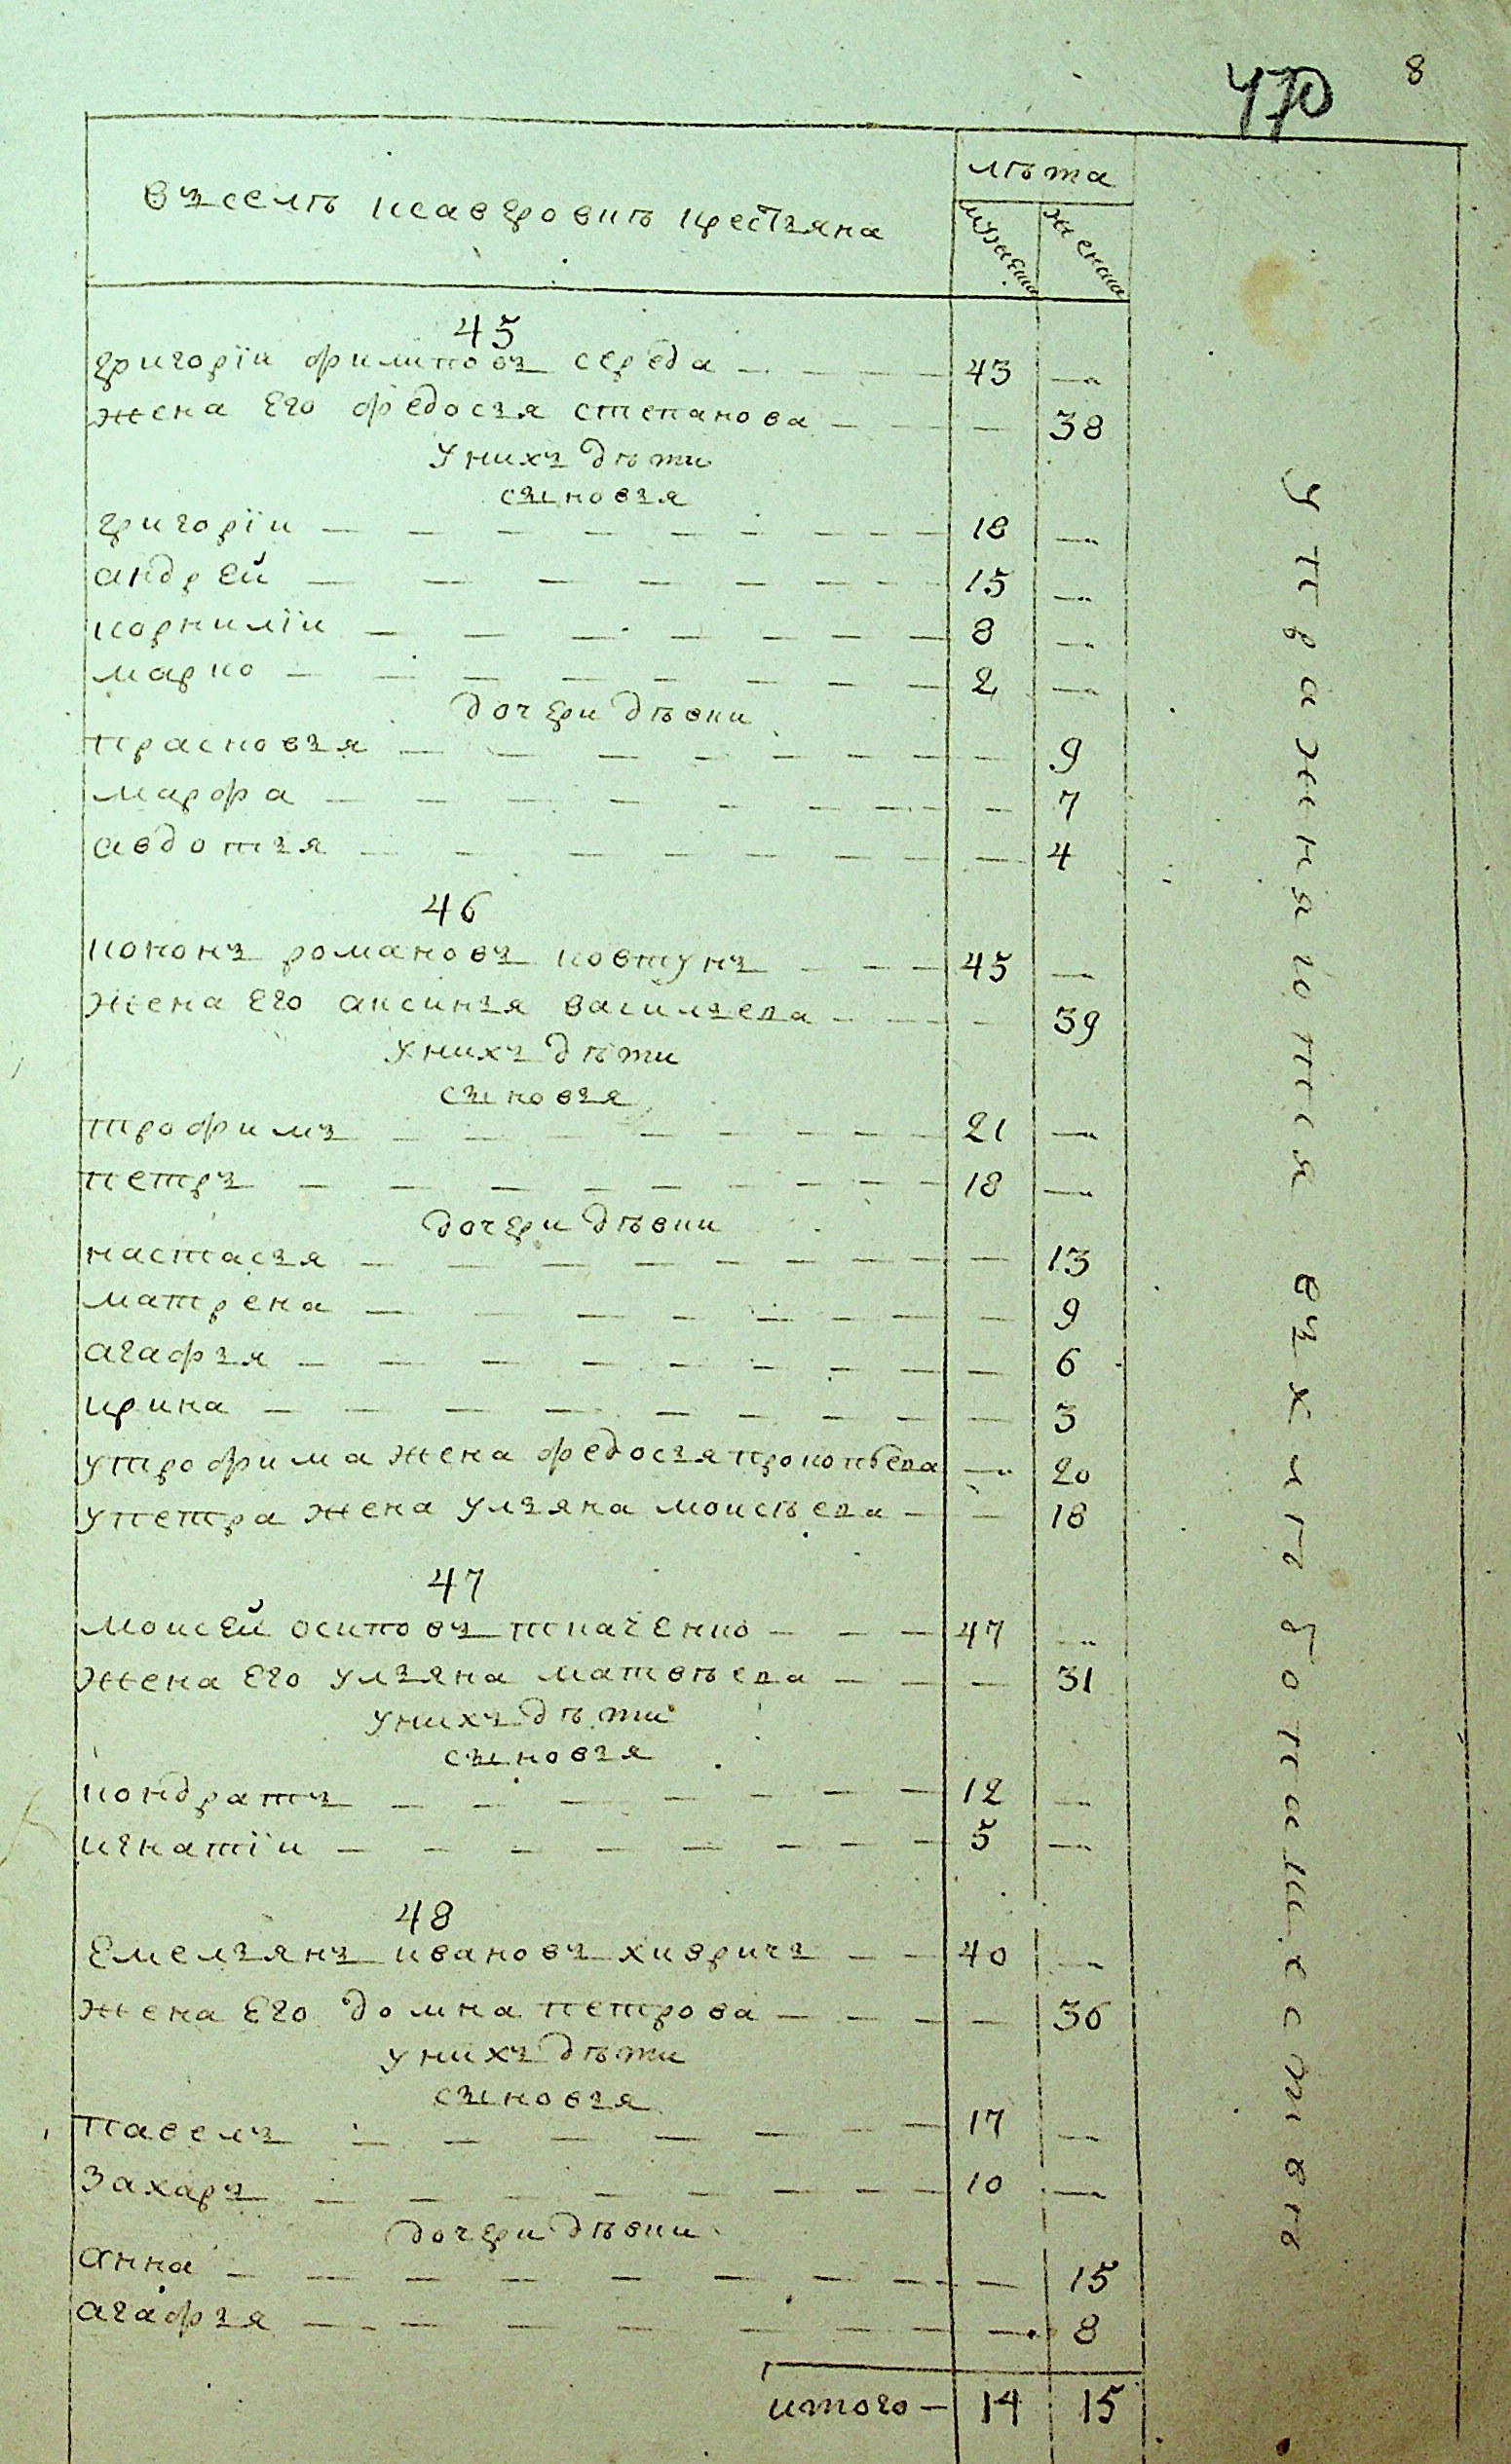 470 8
въ селѣ кѣавдровкѣ крестьяна
лѣта
мужеска
женска
45
григорїи филиповъ середа — — — — 43 —
жена Его федосья степанова — — — 38
у нихъ дѣти
сыновья
григорїи — — — — — — — — 18 —
андрей — — — — — — — 15 —
корнилїи — — — — — — — 8 —
марко — — — — — — — — 2 —
дочери дѣвки
прасковья — — — — — — — — 9
марфа — — — — — — — — 7
авдотья — — — — — — — — 4
46
кононъ романовъ ковтунъ — — — 45 —
жена Его аксинья васильева — — — 39
у нихъ дѣти
сыновья
трофимъ — — — — — — — 21 —
петръ — — — — — — — — 18 —
дочери дѣвки
настасья — — — — — — — — 13
матрена — — — — — — — — 9
агафья — — — — — — — — 6
ирина — — — — — — — — — 3
у трофима жена федосья прокопьева — 20
у петра жена ульяна моисѣева — — 18
47
моисей осиповъ ткаченко — — — 47 —
жена Его ульяна матвѣева — — — 31
у нихъ дѣти
сыновья
кондратъ — — — — — — — 12 —
игнатїи — — — — — — — — 5 —
48
Емельянъ ивановъ хивричъ — — 40 —
жена Его домна петрова — — — — 36
у нихъ дѣти
сыновья
павелъ — — — — — — — 17 —
захаръ — — — — — — — — 10 —
дочери дѣвки
анна — — — — — — — — — 15
агафья — — — — — — — — 8
итого — 14 15
упражняются въ хлѣбопашествѣ